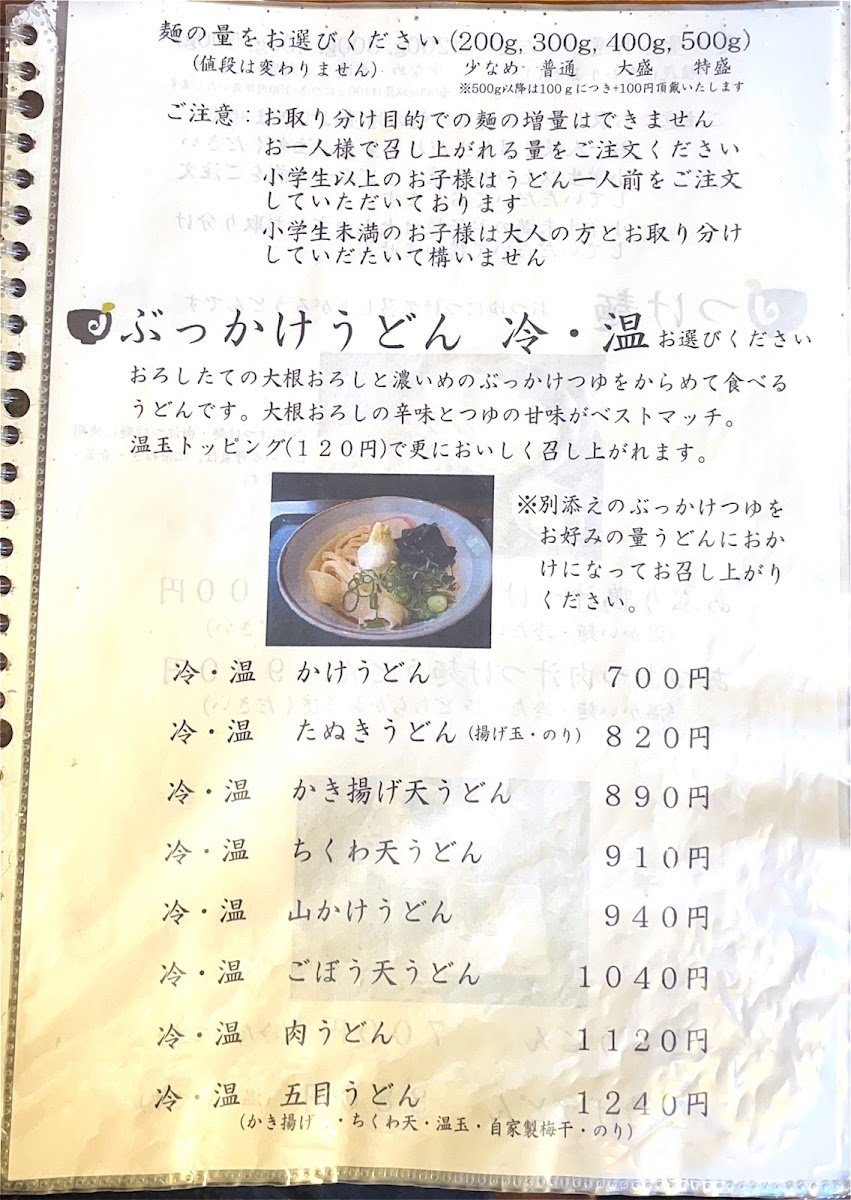 麺の量をお選びください(200g, 300g, 400g, 500g)
(値段は変わりません) 少なめ 普通 大盛 特盛
※500g以降は100gにつき+100円頂戴いたします
ご注意：お取り分け目的での麺の増量はできません
お一人様で召し上がれる量をご注文ください
小学生以上のお子様はうどん一人前をご注文
していただいております
小学生未満のお子様は大人の方とお取り分け
していだたいて構いません
ぶっかけうどん 冷・温 お選びください
おろしたての大根おろしと濃いめのぶっかけつゆをからめて食べる
うどんです。大根おろしの辛味とつゆの甘味がベストマッチ。
温玉トッピング(１２０円)で更においしく召し上がれます。
※別添えのぶっかけつゆを
お好みの量うどんにおか
けになってお召し上がり
ください。
冷・温 かけうどん ７００円
冷・温 たぬきうどん(揚げ玉・のり) ８２０円
冷・温 かき揚げ天うどん ８９０円
冷・温 ちくわ天うどん ９１０円
冷・温 山かけうどん ９４０円
冷・温 ごぼう天うどん １０４０円
冷・温 肉うどん １１２０円
冷・温 五目うどん １２４０円
(かき揚げ ・ちくわ天・温玉・自家製梅干・のり)